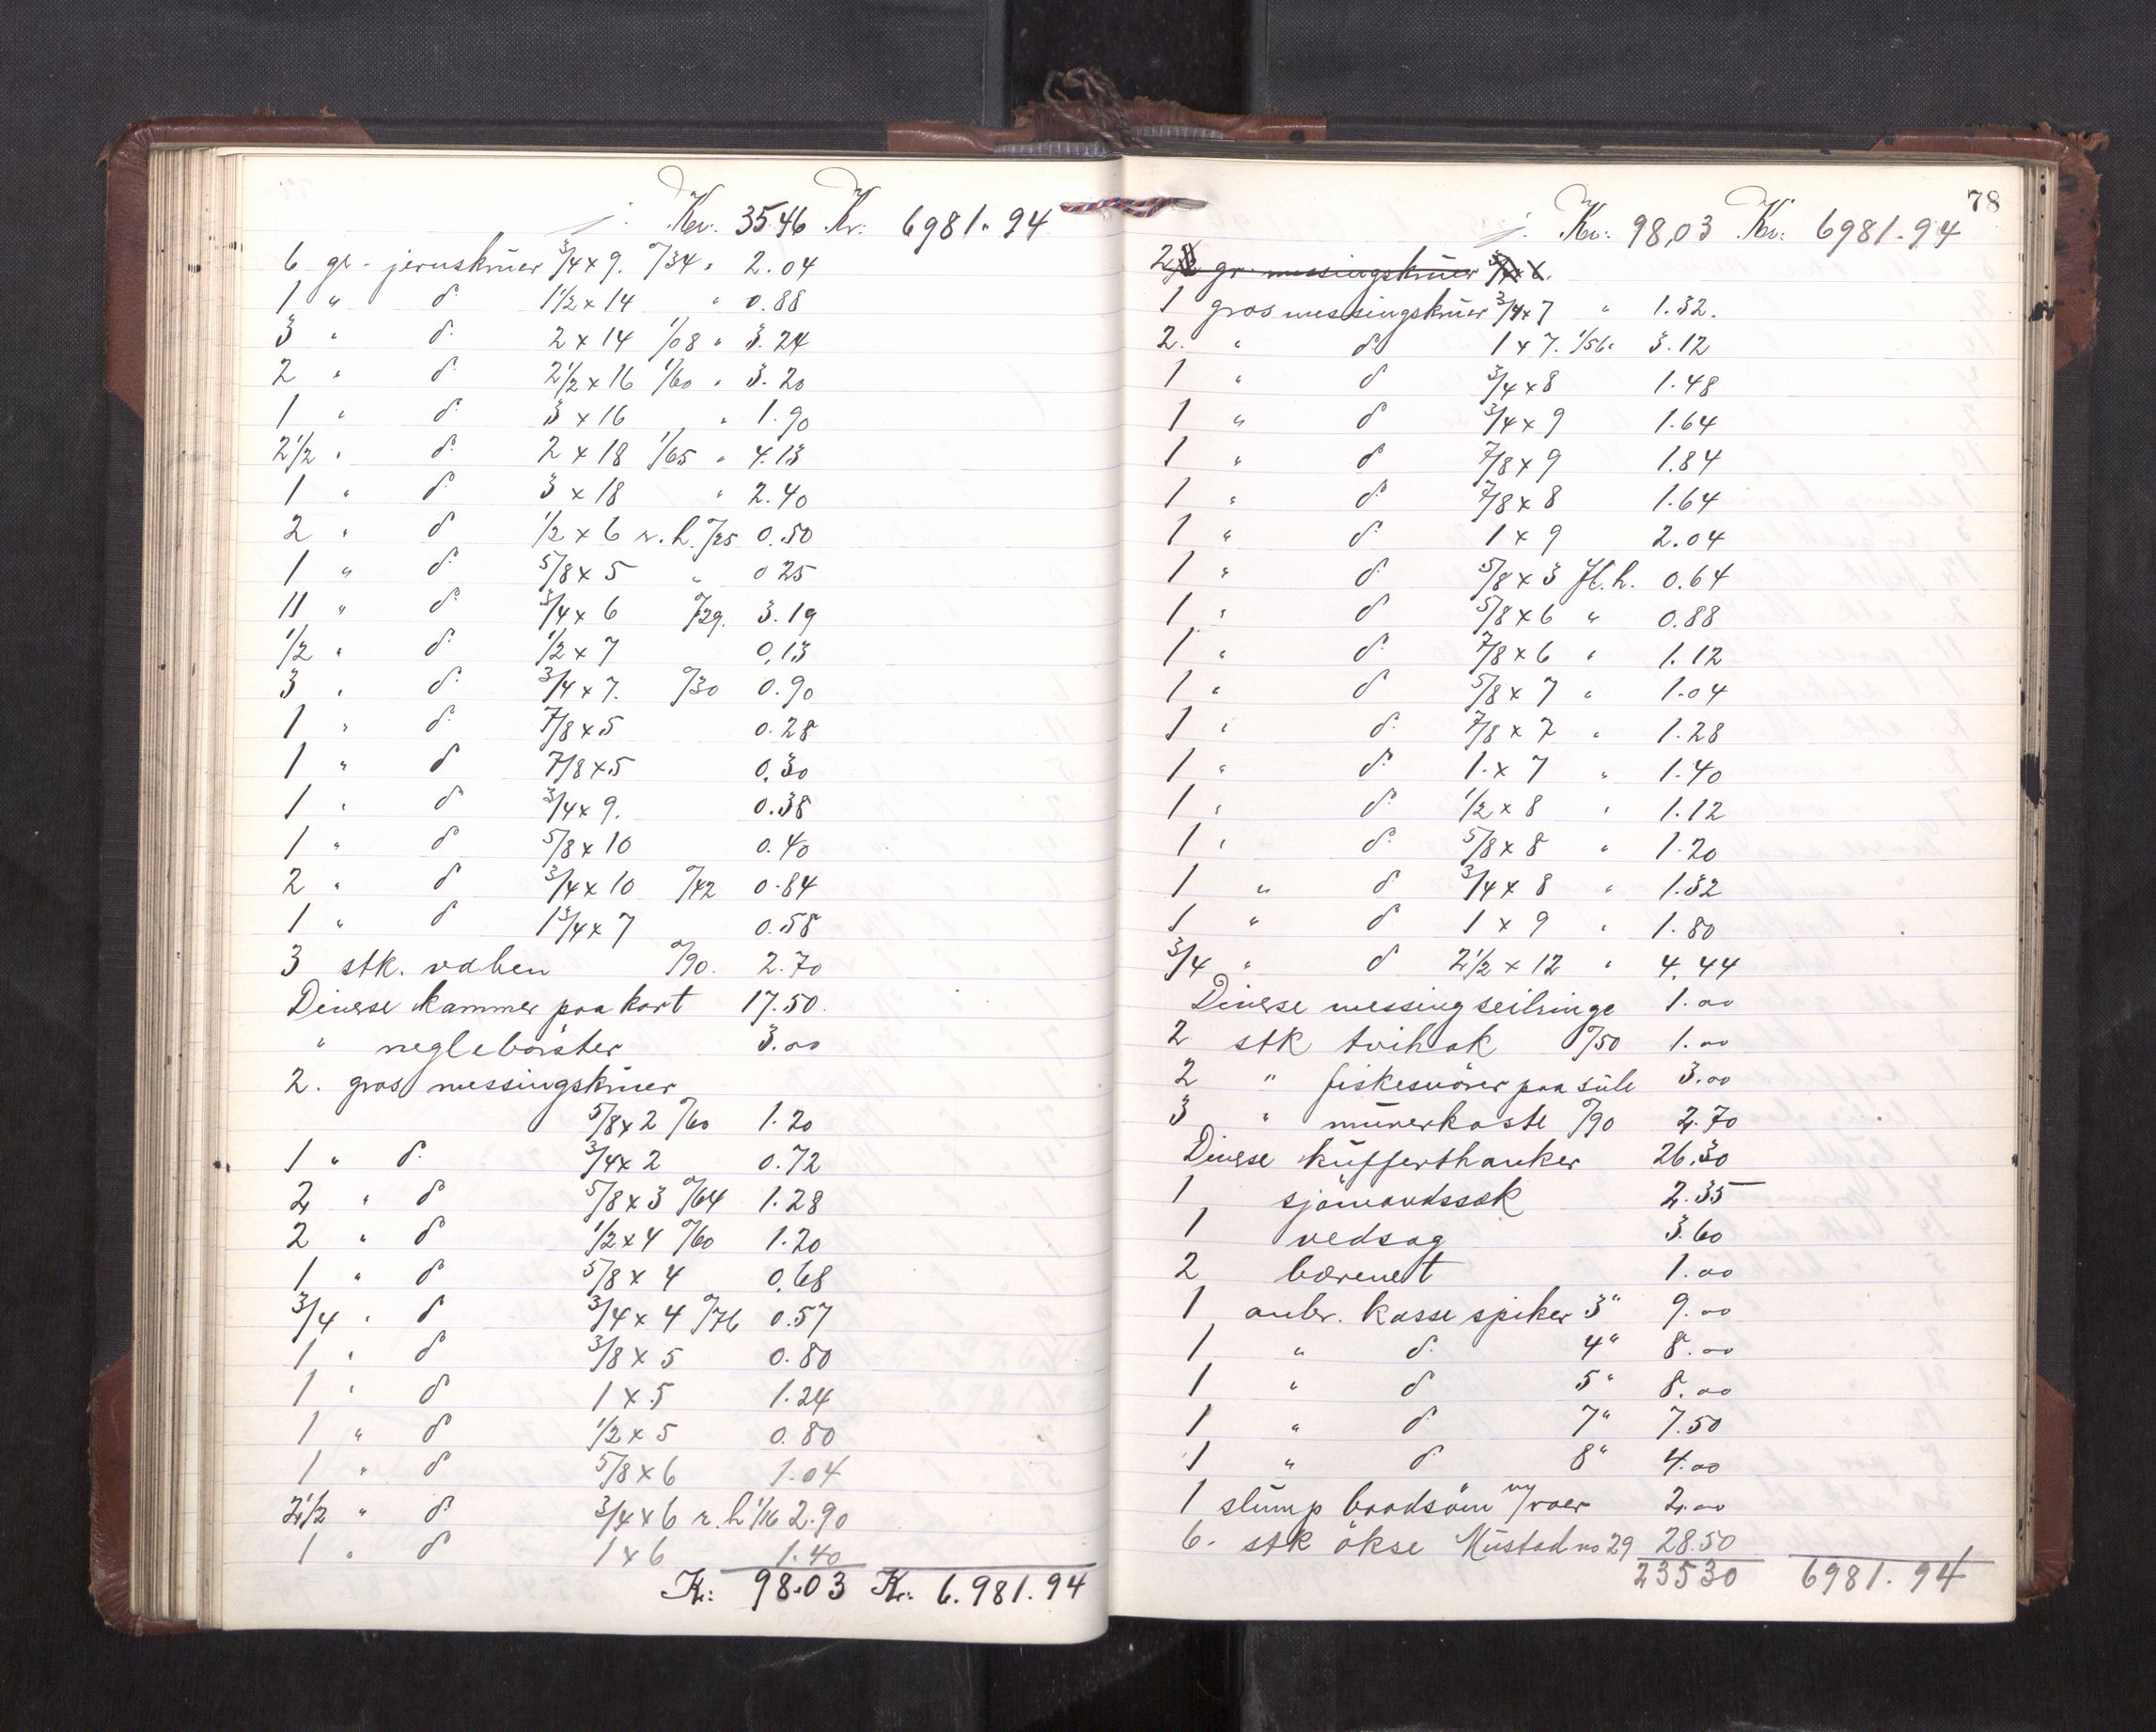 Kr. 35.46 Kr. 6981.94
6 gr. jernskruer 3/4 x 9. 0/34 " 2.04
1 " d. 1 1/2 x 14 " 0.88
3 " d. 2 x 14 1/08 " 3.24
2 " d. 2 1/2 x 16 1/60 " 3.20
1 " d. 3 x 16 " 1.90
2 1/2 " d. 2 x 18 1/65 " 4.13
1 " d. 3 x 18 " 2.40
2 " d 1/2 x 6 r.h. 0/25 0.50
1 " d. 5/8 x 5 " 0 25
11 " d. 3/4 x 6 0/29. 3.19
1/2 " d. 1/2 x 7 0,13
3 " d. 3/4 x 7. 0/30 0.90
1 " d 7/8 x 5 0.28
1 " d 7/8 x 5 0.30
1 " d 3/4 x 9. 0.38
1 " d 5/8 x 10 0.40
2 " d 3/4 x 10 0/42 0.84
1 " d 1 3/4 x 7 0.58
3 stk. 0/90. 2.70
Diverse kammer paa kort 17.50.
" neglebörster 3.00
2. gros messingskruer
5/8 x 2 0/60 1.20
1 " d. 3/4 x 2 0.72
2 " d 5/8 x 3 0/64 1.28
2 " d 1/2 x 4 0/60 1.20
1 " d 5/8 x 4 0.68
3/4 " d 3/4 x 4 0/76 0.57
1 " d 3/8 x 5 0.80
1 " d 1 x 5 1.24
1 " d 1/2 x 5 0.80
1 " d 5/8 x 6 1.04
2 1/2 " d 3/4 x 6 r.h 1/16 2.90
1 " d 1 x 6 1.40
Kr: 98.03 Kr. 6.981.94
78
Kr. 98,03 Kr. 6981.94
gr. messingskruer
1 gros messingskruer 3/4 x 7 " 1.32.
2. " d. 1 x 7. 1/56 " 3.12
1 " d 3/4 x 8 1.48
1 " d 3/4 x 9 1.64
1 " d 7/8 x 9 1.84
1 " d. 7/8 x 8 1.64
1 " d. 1 x 9 2.04
1 " d. 5/8 x 3 fl.h. 0.64
1 " d 5/8 x 6 " 0.88
1 " d. 7/8 x 6 " 1.12
1 " d 5/8 x 7 " 1.04
1 " d. 7/8 x 7 " 1.28
1 " d. 1 x 7 " 1.40
1 " d. 1/2 x 8 " 1.12
1 " d. 5/8 x 8 " 1.20
1 " d 3/4 x 8 " 1.32
1 " d 1 x 9 " 1.80
3/4 " d 2 1/2 x 12 " 4.44
Diverse messing seilringe 1.00
2 stk tvihak 0/50 1.00
2 " fiskesnörer paa 3.00
3 " murerkoste 0/90 2.70
Diverse kufferthanker 26.30
1 sjömandssæk 2.35
1 vedsag 3.60
2 bærenet 1.00
1 anbr. kasse spiker 3" 9.00
1 " d. 4" 8.00
1 " d 5" 8.00
1 " d 7" 7.50
1 " d 8" 4.00
1 slump baadsöm m/roer 2.00
6. stk ökse Mustad no 29 28.50
235 30 6981.94